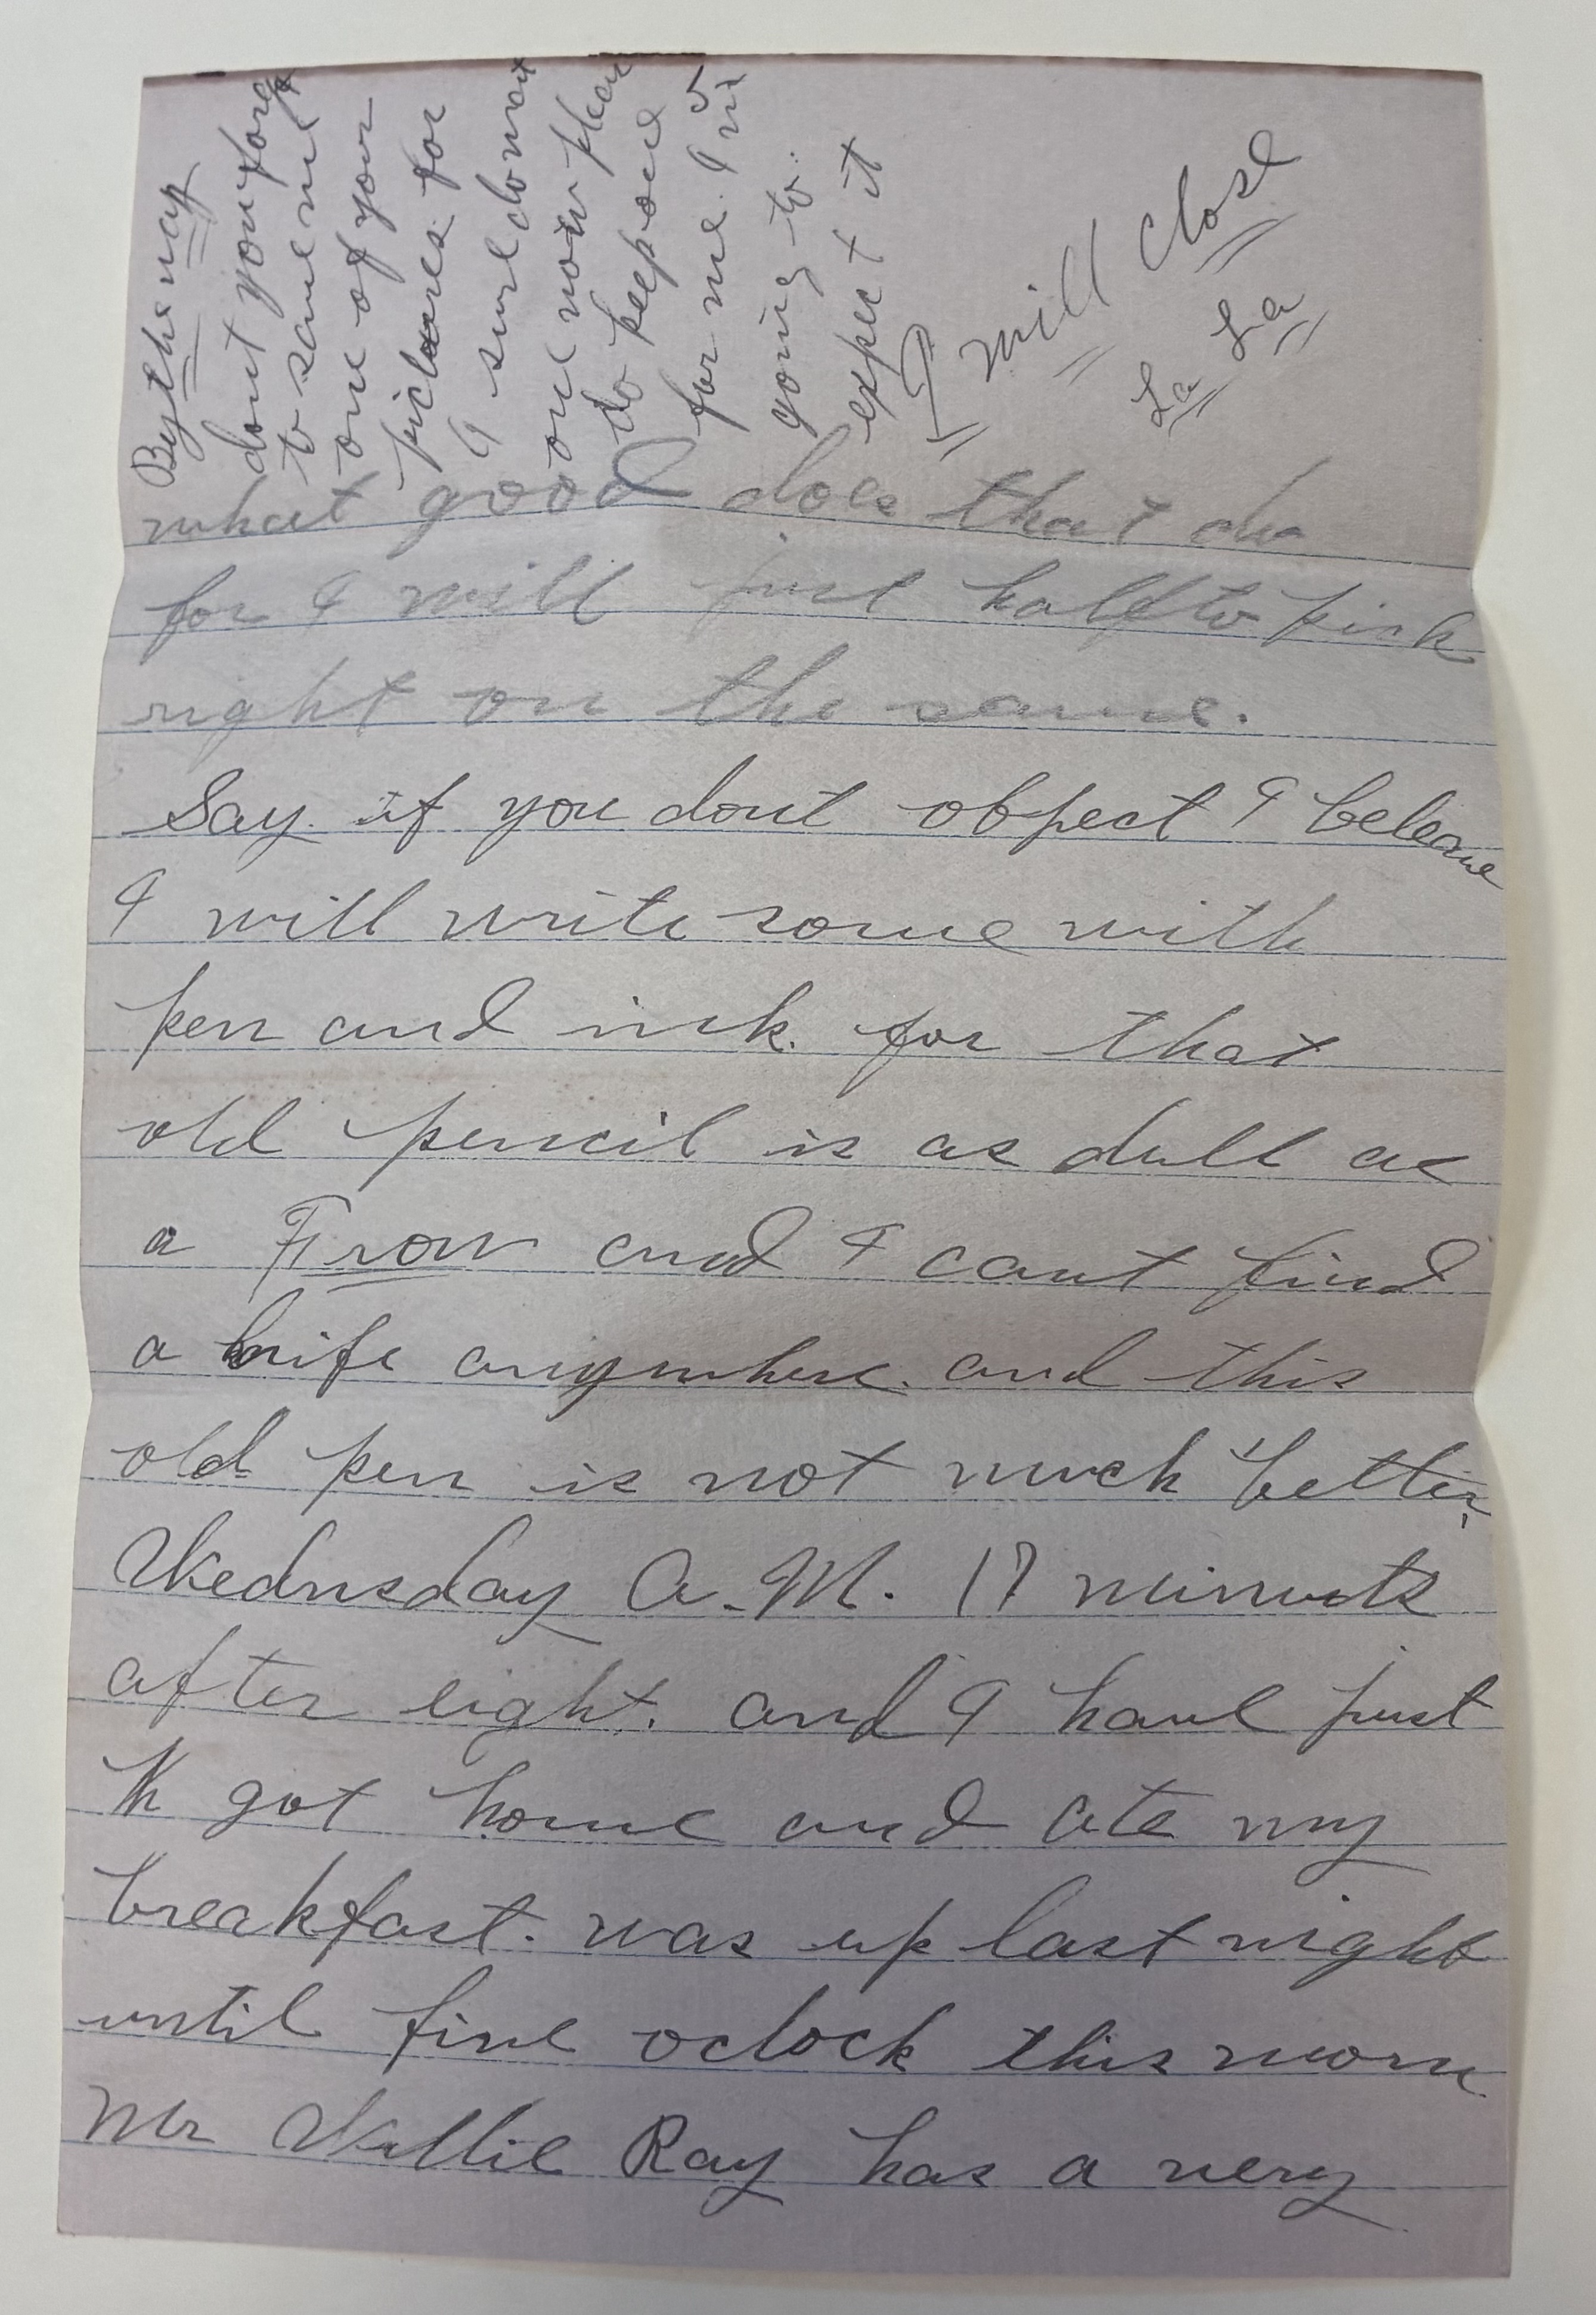 By the way
dont you forget
to save me
one of your
pictures for
I sure do want
one now pleas
do keep one
for me. I'm
going to.
expect it
I will close
La La
what good does that do
for I will just halfto pick
right on the same.
Say. if you dont object I beleave
I will write some with
pen and ink. for that
old pencil is as dull as
a Frow and I cant find
a knife anywhere. and this
old pen is not much better.
Wednesday A.M. 17 minuets
after eight. and I have just
got home and ate my
breakfast. was up last night
until five oclock this morn.
Mr Willie Ray has a very